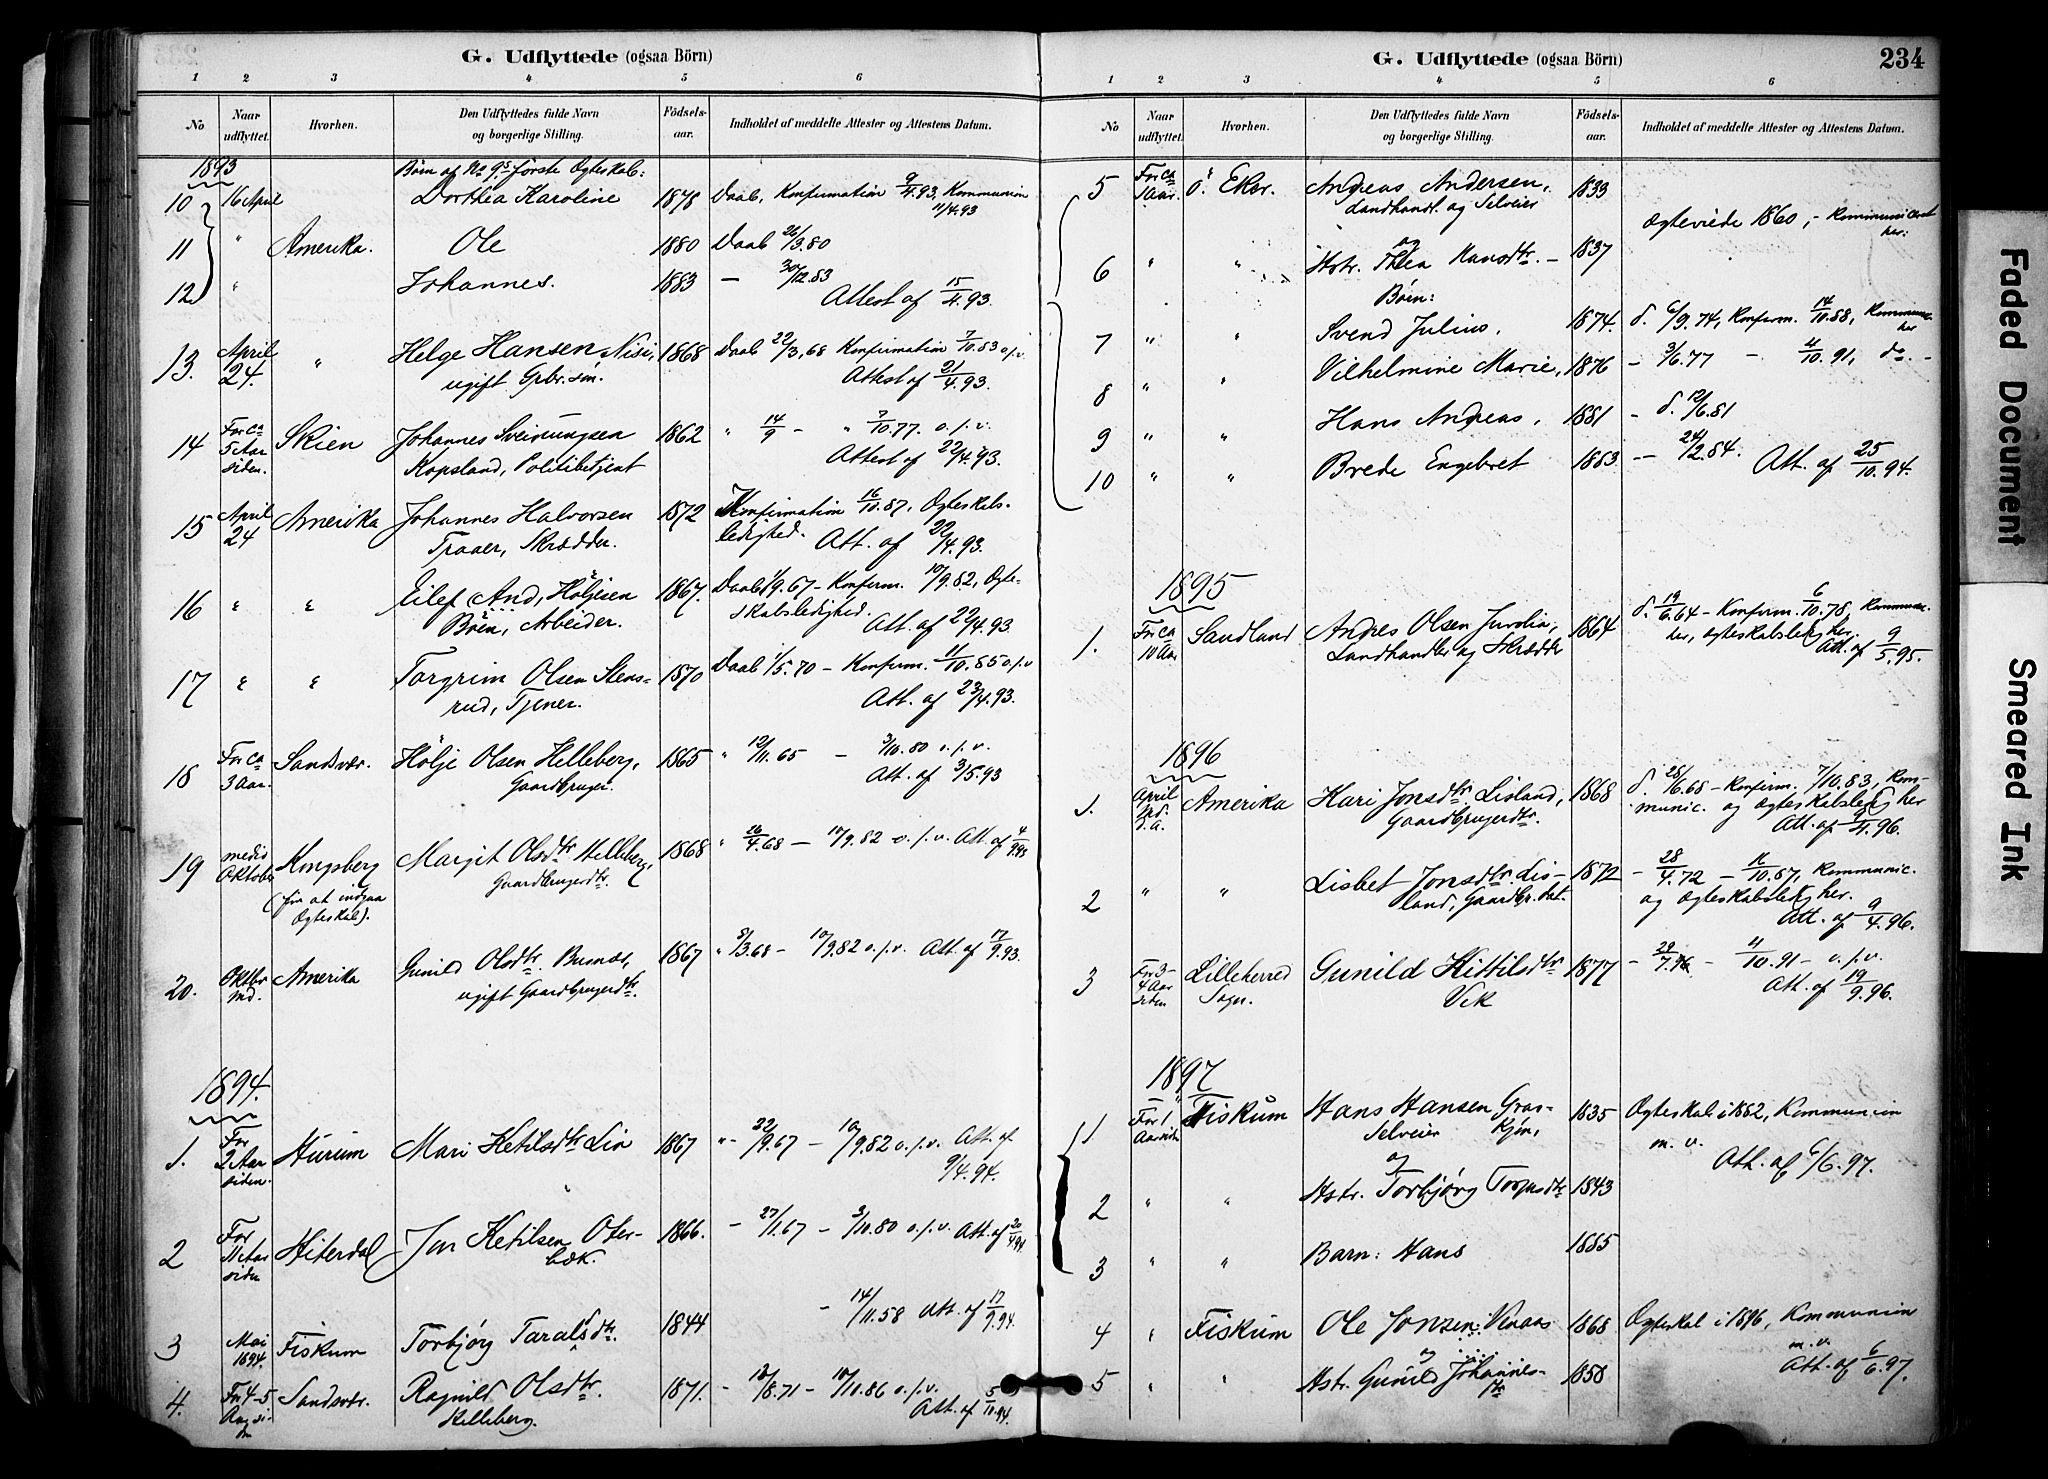 G. Udflyttede (ogsaa Börn)
1 2 3 4 5 6
No
Naar udflyttet.
Hvorhen.
Den Udflyttedes fulde Navn og borgerlige Stilling.
Födsels-aar.
Indholdet af meddelte Attester og Attestens Datum.
1893
Børn af No 9s første Ægteskab:
10 16 April Dorthea Karoline 1878 Daab, Konfirmation 9/4.93, Kommunion
11/4.93
11 " Amerika. Ole 1880 Daab 26/3.80
12 " Johannes. 1883 — 30/12.83
Attest af 15/4.93.
13. April 24. " Helge Hansen Nisi, 1868 Daab 22/3,68 Konfirmation 7/10.83 o.s.v.
ugift Grbr.søn. Attest af 21/4.93.
14 For ca 5 Aar siden. Skien Johannes Sveinungsen 1862 " 14/9 — " 7/10.77. o.s.v.
Kopsland, Politibetjent Attest af 22/4.93.
15 April 24 Amerika Johannes Halvorsen 1872 Konfirmation 16/10.87, Ægteskabs-
Traaer, Skrædder. ledighed. Att. af 22/4.93.
16 " " Eilef And. Höljesen 1867. Daab 1/9.67 – Konfirm. 10/9.82, Ægte-
Böen, Arbeider. skabsledighed. Att. af 22/4.93.
17 " " Torgrim Olsen Stens- 1870 Daab 1/5.70 – Konfirm. 11/10.85 o.s.v
rud, Tjener. Att. af 23/4.93.
18 For ca 3 Aar. Sandsvær. Hölje Olsen Helleberg, 1865 " 12/11.65 — 3/10.80 o.s.v.
Gaardbruger. Att. af 3/5.93
19 medio Oktober Kongsberg Margit Olsdtr Helleberg, 1868 " 26/4.68 — 10/9.82 o.s.v. Att. af 4/9.93
(for at indgaa Gaardbrugerdtr.
Ægteskab).
20. Oktbr md. Amerika Gunild Olsdtr. Busnæs, 1867 " 8/3.68 – 10/9.82 o.s.v. Att. af 17/9.93.
ugift Gaardbrugerdtr.
1894.
1. For 2 Aar siden. Hurum Mari Ketilsdtr Lia 1867 " 22/9.67 – 10/9.82 o.s.v. Att. af
9/4.94.
2 For 11 Aar siden Hiterdal Jon Ketilsen Oter- 1866. – 27/11.67 – 3/10.80 o.s.v. Att. af 20/4.94
bæk.
3 Mai 1894. Fiskum Torbjörg Taralsdtr. 1844 – 14/11.58 Att. af 17/9.94.
4. For 4–5 Aar siden Sandsvær. Ragnild Olsdtr 1871. – 13/8.71 – 10/11.86 o.s.v.
Helleberg. Att. af 5/10.94.
G. Udflyttede (ogsaa Börn)
234
1 2 3 4 5 6
No
Naar udflyttet.
Hvorhen.
Den Udflyttedes fulde Navn og borgerlige Stilling.
Födsels-aar.
Indholdet af meddelte Attester og Attestens Datum.
5 For ca 1 Aar. Ö. Eker. Andreas Andersen, 1833
Landhandl. og Selveier
Ægteviede 1860, – Kommuniceret her.
og
6 " " Hstr. Thea Hansdtr. – 1837
Børn:
7 " " Svend Julius, 1874. d. 6/9.74, Konfirm. 14/10.88, Kommun. her
8 " " Vilhelmine Marie, 1876 – 3/6.77 – 4/10.91, do. –
9 " " Hans Andreas, 1881 – d. 12/6.81
10 " " Brede Engebret 1883 — 24/2.84. Att. af 25/10.94.
1895
1. For ca 10 Aar Sandland Andres Olsen Juvelia, 1864 d. 19/6.64 – Konfirm. 6/10.78, Kommun.
Landhandler og Skrædder her, Ægteskabsledig her.
Att. af 9/5.95.
1896
1. April Md. d.a. Amerika Kari Jonsdtr. Lisland, 1868 d. 28/6.68 – Konfirm. 7/10.83, Kom-
Gaardbrugerdtr. munic. og Ægteskabsledig her
Att. af 9/4.96.
2 " " Lisbet Jonsdtr. Lis- 1872 – 28/4.72 – 16/10.87, Kommunic.
land, Gaardbr.dat. og Ægteskabsledig her.
Att. af 9/4.96.
3 For 3–4 Aar siden Lilleherred Sogn. Gunild Kittilsdtr 1877 – 29/7.76 – 4/10.91 – o.s.v.
Vik Att. af 19/9.96.
1897
1 For 1 Aar siden Fiskum Hans Hansen Gras- 1835 Ægteskab i 1882, Kommunion
Selveier kjøn, m. v.
og Att. af 6/6.97.
2 " " Hstr. Torbjörg Torgusdtr 1843
3 " " Barn: Hans 1885
4 " Fiskum Ole Jonsen Venaas 1868 Ægteskab i 1896, Kommunion
og m.v.
5 " " Hstr. Gunild Johannes- 1858 Att. af 6/6.97.
dtr
Faded Document
Smeared Ink